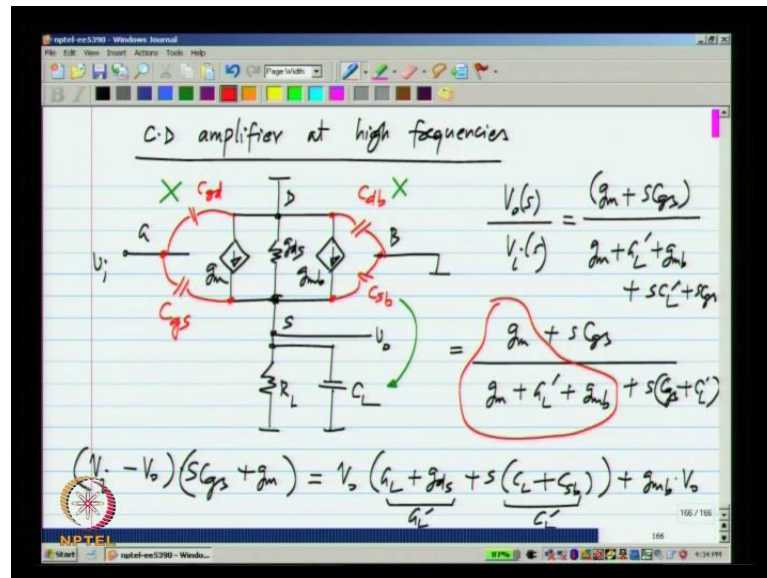 nptel-ee5390 - Windows Journal
File Edit View Insert Actions Tools Help
Page Width
C.D amplifier at high frequencies
X Cgd D Cdb X
G B
Vi gm gds gmb
Cgs Csb
S
Vo
RL CL
Vo(s) / Vi(s) = (gm + sCgs) / gm + GL' + gmb + sCL' + sCgs
= gm + sCgs / gm + GL' + gmb + s(Cgs + CL')
(Vi - Vo)(sCgs + gm) = Vo (GL + gds + s(CL + Csb)) + gmb · Vo
GL' CL'
NPTEL
166 / 166
166
Start nptel-ee5390 - Windo... 87% 4:34 PM